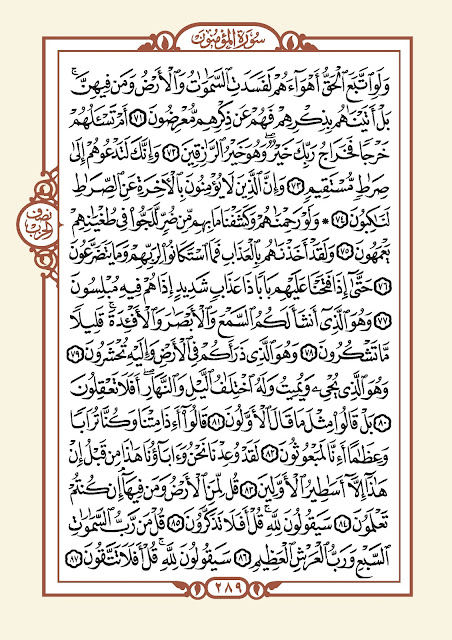 سُورَةُ المُؤْمِنُون
وَلَوِ ٱتَّبَعَ ٱلْحَقُّ أَهْوَآءَهُمْ لَفَسَدَتِ ٱلسَّمَٰوَٰتُ وَٱلْأَرْضُ وَمَن فِيهِنَّ ۚ
بَلْ أَتَيْنَٰهُم بِذِكْرِهِمْ فَهُمْ عَن ذِكْرِهِم مُّعْرِضُونَ ٧١ أَمْ تَسْـَٔلُهُمْ
خَرْجًا فَخَرَاجُ رَبِّكَ خَيْرٌ ۖ وَهُوَ خَيْرُ ٱلرَّٰزِقِينَ ٧٢ وَإِنَّكَ لَتَدْعُوهُمْ إِلَىٰ
صِرَٰطٍ مُّسْتَقِيمٍ ٧٣ وَإِنَّ ٱلَّذِينَ لَا يُؤْمِنُونَ بِٱلْـَٔاخِرَةِ عَنِ ٱلصِّرَٰطِ
لَنَٰكِبُونَ ٧٤ * وَلَوْ رَحِمْنَٰهُمْ وَكَشَفْنَا مَا بِهِم مِّن ضُرٍّ لَّلَجُّوا۟ فِى طُغْيَٰنِهِمْ
نصف الحزب
يَعْمَهُونَ ٧٥ وَلَقَدْ أَخَذْنَٰهُم بِٱلْعَذَابِ فَمَا ٱسْتَكَانُوا۟ لِرَبِّهِمْ وَمَا يَتَضَرَّعُونَ
٧٦ حَتَّىٰٓ إِذَا فَتَحْنَا عَلَيْهِم بَابًا ذَا عَذَابٍ شَدِيدٍ إِذَا هُمْ فِيهِ مُبْلِسُونَ
٧٧ وَهُوَ ٱلَّذِىٓ أَنشَأَ لَكُمُ ٱلسَّمْعَ وَٱلْأَبْصَٰرَ وَٱلْأَفْـِٔدَةَ ۚ قَلِيلًا
مَّا تَشْكُرُونَ ٧٨ وَهُوَ ٱلَّذِى ذَرَأَكُمْ فِى ٱلْأَرْضِ وَإِلَيْهِ تُحْشَرُونَ ٧٩
وَهُوَ ٱلَّذِى يُحْىِۦ وَيُمِيتُ وَلَهُ ٱخْتِلَٰفُ ٱلَّيْلِ وَٱلنَّهَارِ ۚ أَفَلَا تَعْقِلُونَ
٨٠ بَلْ قَالُوا۟ مِثْلَ مَا قَالَ ٱلْأَوَّلُونَ ٨١ قَالُوٓا۟ أَءِذَا مِتْنَا وَكُنَّا تُرَابًا
وَعِظَٰمًا أَءِنَّا لَمَبْعُوثُونَ ٨٢ لَقَدْ وُعِدْنَا نَحْنُ وَءَابَآؤُنَا هَٰذَا مِن قَبْلُ إِنْ
هَٰذَآ إِلَّآ أَسَٰطِيرُ ٱلْأَوَّلِينَ ٨٣ قُل لِّمَنِ ٱلْأَرْضُ وَمَن فِيهَآ إِن كُنتُمْ
تَعْلَمُونَ ٨٤ سَيَقُولُونَ لِلَّهِ ۚ قُلْ أَفَلَا تَذَكَّرُونَ ٨٥ قُلْ مَن رَّبُّ ٱلسَّمَٰوَٰتِ
ٱلسَّبْعِ وَرَبُّ ٱلْعَرْشِ ٱلْعَظِيمِ ٨٦ سَيَقُولُونَ لِلَّهِ ۚ قُلْ أَفَلَا تَتَّقُونَ ٨٧
٢٨٩